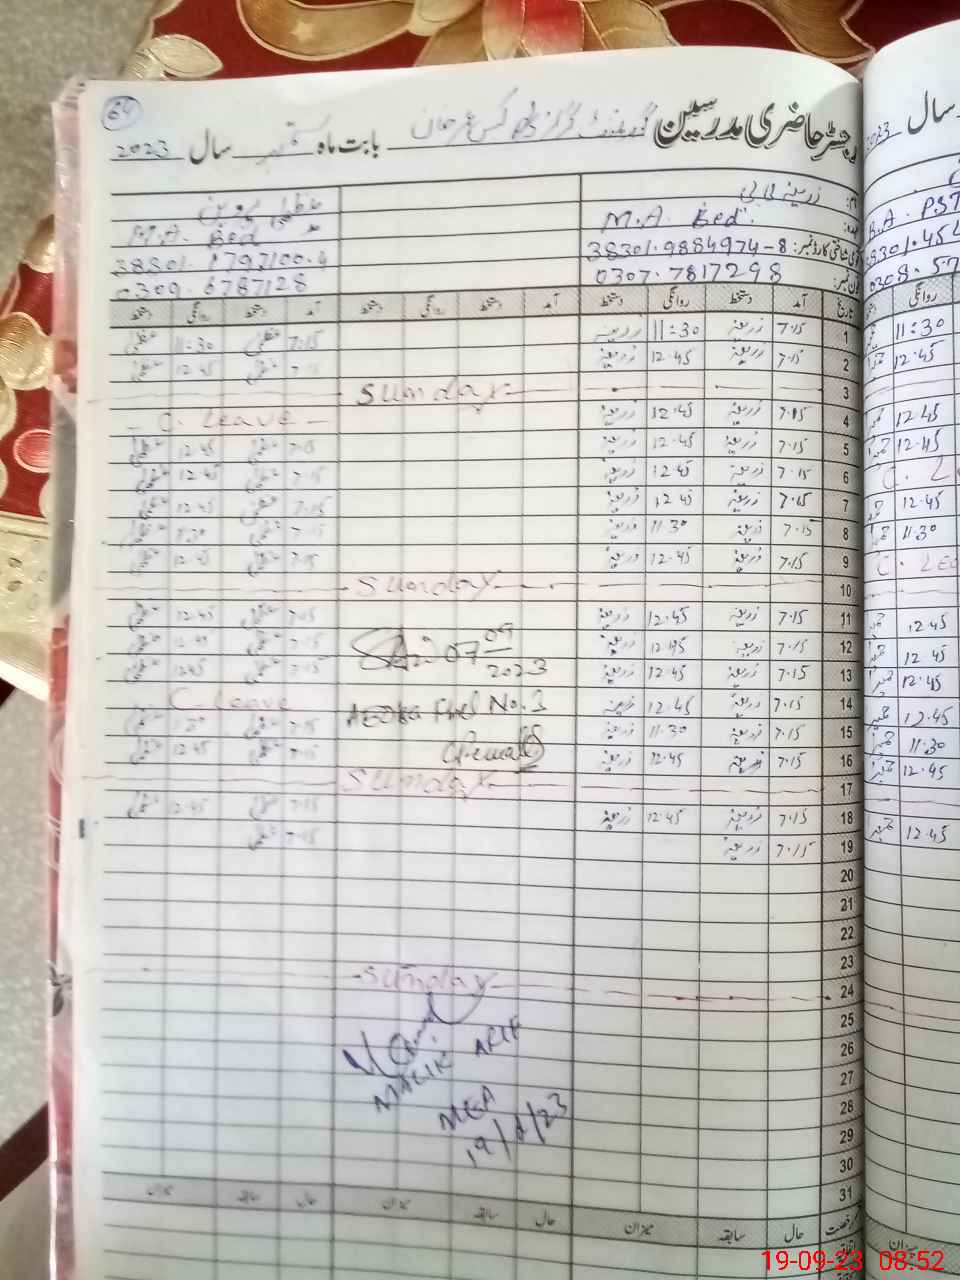 64
رجسٹر حاضری مدرسین گورنمنٹ گرلز بابت ماہ ستمبر سال 2023
سال 2023
M.A. Bed M.A. Bed B.A. PST
شناختی کارڈ نمبر: 38301.9884974-8
0307.7817298 0309.6787128
تاریخ آمد دستخط روانگی دستخط آمد دستخط روانگی دستخط آمد دستخط روانگی دستخط روانگی
1 7.15 زرینہ 11:30 زرینہ 7.15 عظمیٰ 11:30 عظمیٰ 11:30
2 7.15 زرینہ 12.45 زرینہ 7.15 عظمیٰ 12.45 عظمیٰ 12.45
3 Sunday
4 7.15 زرینہ 12.45 زرینہ C. Leave 12.45
5 7.15 زرینہ 12.45 زرینہ 7.15 عظمیٰ 12.45 عظمیٰ 12.45
6 7.15 زرینہ 12.45 زرینہ 7.15 عظمیٰ 12.45 عظمیٰ
7 7.15 زرینہ 12.45 زرینہ 7.15 عظمیٰ 12.45 عظمیٰ 12.45
8 7.15 زرینہ 11.30 زرینہ 7.15 عظمیٰ 11.30 عظمیٰ 11.30
9 7.15 زرینہ 12.45 زرینہ 7.15 عظمیٰ 12.45 عظمیٰ
10 Sunday
11 7.15 زرینہ 12.45 زرینہ 7.15 عظمیٰ 12.45 عظمیٰ 12.45
12 7.15 زرینہ 12.45 زرینہ 7.15 عظمیٰ 12.45 عظمیٰ 12.45
07 09
2023
13 7.15 زرینہ 12.45 زرینہ 7.15 عظمیٰ 12.45 عظمیٰ 12.45
14 7.15 زرینہ 12.45 زرینہ C. Leave 12.45
No. 3
15 7.15 زرینہ 11.30 زرینہ 7.15 عظمیٰ 11.30 عظمیٰ 11.30
16 7.15 زرینہ 12.45 زرینہ 7.15 عظمیٰ 12.45 عظمیٰ 12.45
17 Sunday
18 7.15 زرینہ 12.45 زرینہ 7.15 عظمیٰ 12.45 عظمیٰ 12.45
19 7.15 زرینہ 7.15 عظمیٰ
20
21
22
23
24 Sunday
25
26
MALIK ARIF
27
28
MEA
29
30
31
حال سابقہ میزان حال سابقہ میزان حال سابقہ میزان میزان
19-09-23 08:52